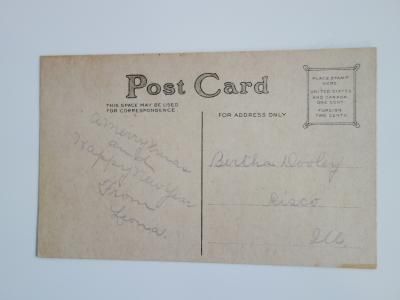 Post Card
THIS SPACE MAY BE USED
FOR CORRESPONDENCE.
FOR ADDRESS ONLY
PLACE STAMP
HERE.
UNITED STATES
AND CANADA.
ONE CENT.
FOREIGN.
TWO CENTS.
A Merry Xmas
and
Happy New Year
From
Leona.
Bertha Dooley
Cisco
Ill.